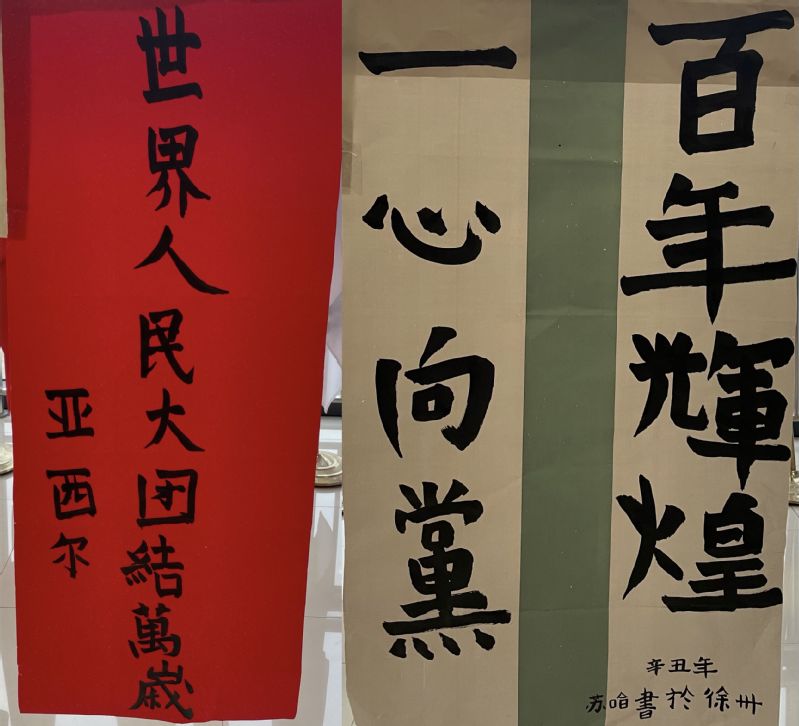 世界人民大团結萬歲
亚西尔
百年輝煌
一心向黨
辛丑年
苏哈書於徐州